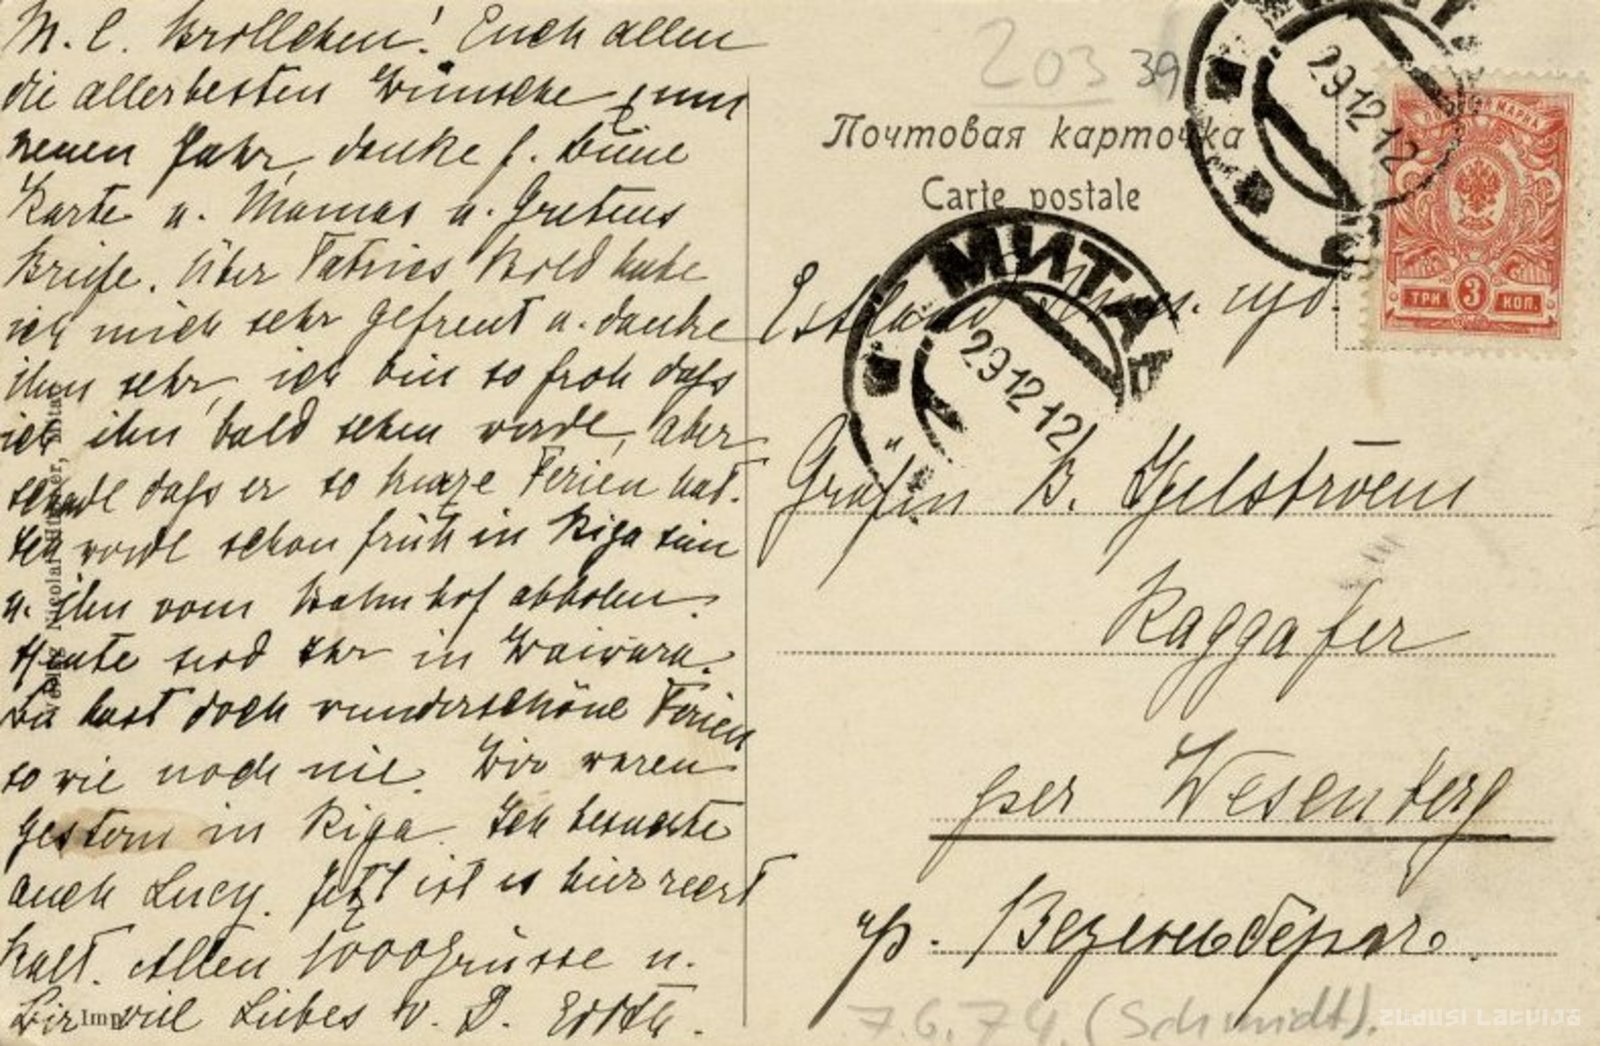 M. l. Krollchen! Euch allen
die allerbesten Wünsche zum
neuen Jahr, danke f. Deine
Karte u. Mamas u. Gretens
Briefe. Über Patries Bild habe
ich mich sehr gefreut u. danke
ihm sehr, ich bin so froh dass
ich ihn bald sehen werde, aber
schade dass er so kurze Ferien hat.
Ich werde schon früh in Riga sein
u. ihn vom Bahnhof abholen.
Heute seid Ihr in Waiwara.
Du hast doch wunderschöne Ferien
so wie noch nie. Wir waren
gestern in Riga. Ich besuchte
auch Lucy. Jetzt ist es hier recht
kalt. Allen 1000 Grüsse u.
Dir viel Liebes v. D. Edith.
203 39
Почтовая карточка
Carte postale
МИТАВА
29 12 12
МИТАВА
29 12 12
ТРИ 3 КОП.
Estland
Gräfin B. Igelström
Raggafer
per Wesenberg
чр. Везенбергъ.
7.6.74. (Schmidt).
zudusi Latvija